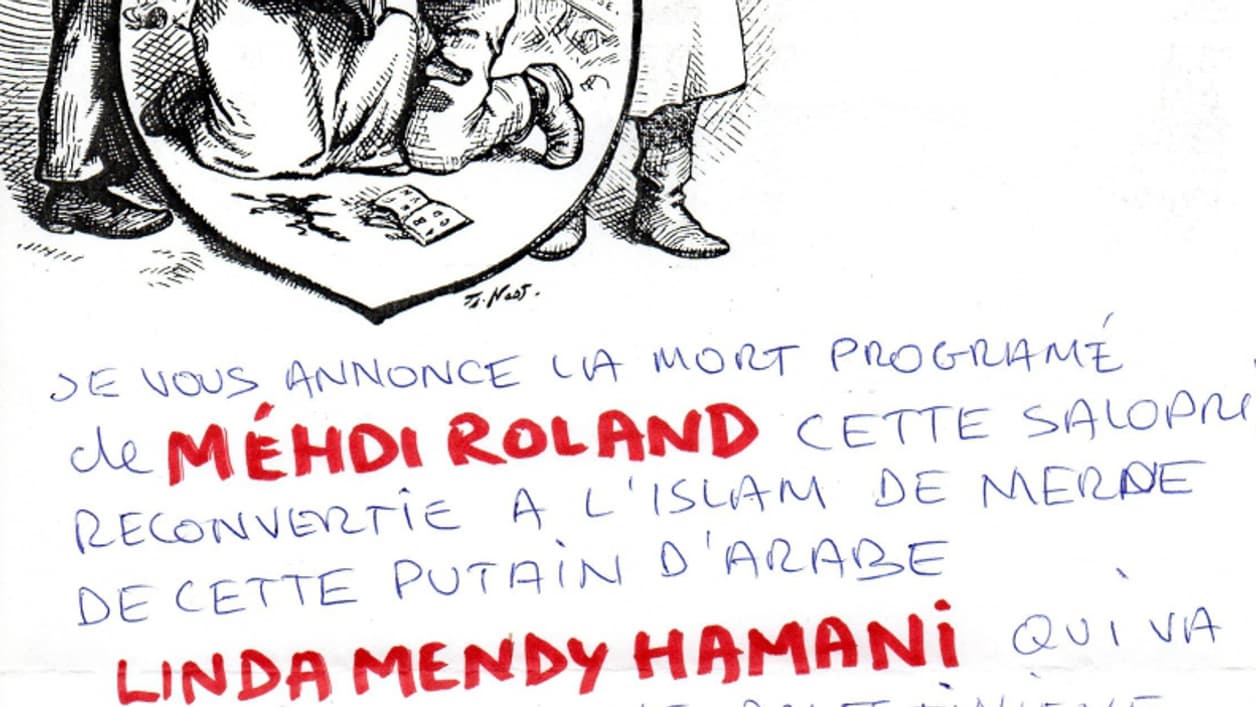 Th. Nast.
JE VOUS ANNONCE LA MORT PROGRAMÉ
de MÉHDI ROLAND CETTE SALOPRI
RECONVERTIE A L'ISLAM DE MERDE
DE CETTE PUTAIN D'ARABE
LINDA MENDY HAMANI QUI VA